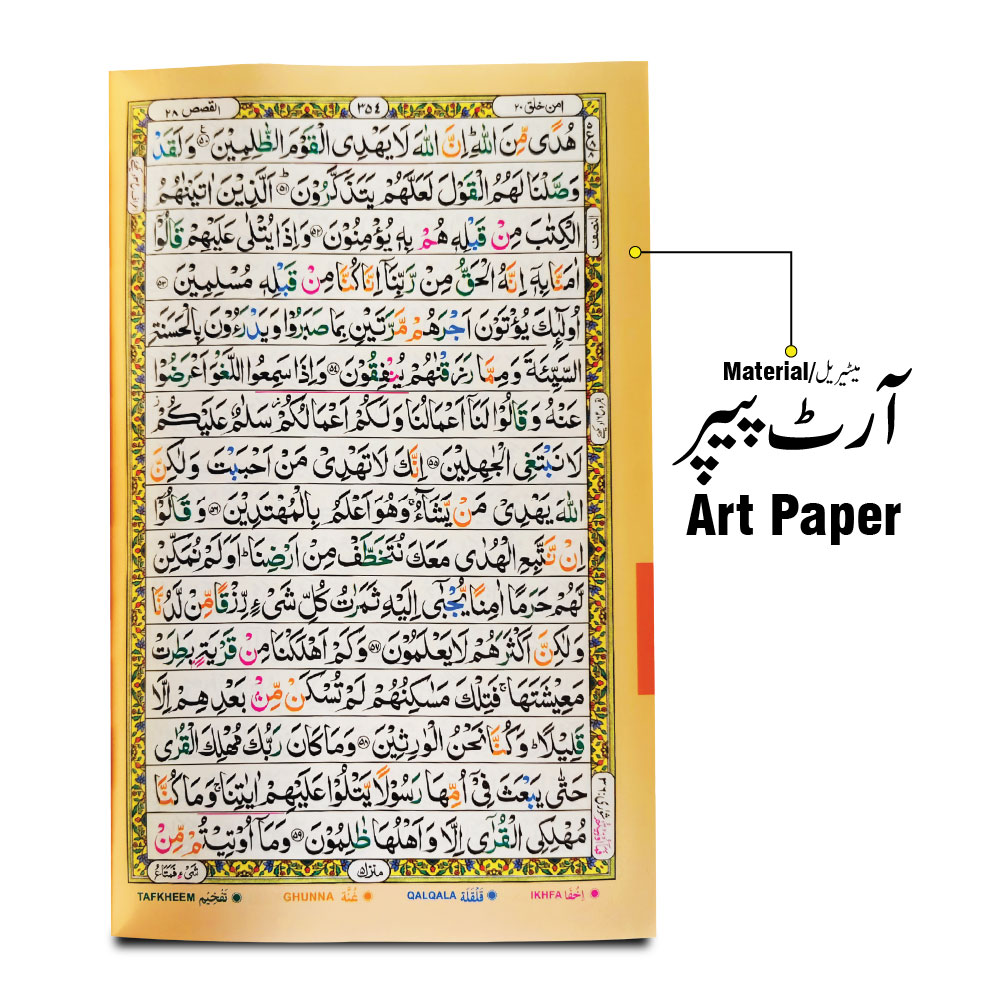 امن خلق ۲۰
۳۵٤
القصص ۲۸
هُدًى مِّنَ اللّٰهِ ؕ اِنَّ اللّٰهَ لَا يَهْدِى الْقَوْمَ الظّٰلِمِيْنَ ۵۰ وَلَقَدْ
وَصَّلْنَا لَهُمُ الْقَوْلَ لَعَلَّهُمْ يَتَذَكَّرُوْنَ ؕ ۵۱ اَلَّذِيْنَ اٰتَيْنٰهُمُ
الْكِتٰبَ مِنْ قَبْلِهٖ هُمْ بِهٖ يُؤْمِنُوْنَ ۵۲ وَاِذَا يُتْلٰى عَلَيْهِمْ قَالُوْۤا
النصف
اٰمَنَّا بِهٖۤ اِنَّهُ الْحَقُّ مِنْ رَّبِّنَاۤ اِنَّا كُنَّا مِنْ قَبْلِهٖ مُسْلِمِيْنَ ۵۳
اُولٰٓئِكَ يُؤْتَوْنَ اَجْرَهُمْ مَّرَّتَيْنِ بِمَا صَبَرُوْا وَيَدْرَءُوْنَ بِالْحَسَنَةِ
السَّيِّئَةَ وَمِمَّا رَزَقْنٰهُمْ يُنْفِقُوْنَ ۵٤ وَاِذَا سَمِعُوا اللَّغْوَ اَعْرَضُوْا
عَنْهُ وَقَالُوْا لَنَاۤ اَعْمَالُنَا وَلَكُمْ اَعْمَالُكُمْ سَلٰمٌ عَلَيْكُمْ
لَا نَبْتَغِى الْجٰهِلِيْنَ ۵۵ اِنَّكَ لَا تَهْدِىْ مَنْ اَحْبَبْتَ وَلٰكِنَّ
اللّٰهَ يَهْدِىْ مَنْ يَّشَآءُ ۚ وَهُوَ اَعْلَمُ بِالْمُهْتَدِيْنَ ۵۶ وَقَالُوْۤا
اِنْ نَّتَّبِعِ الْهُدٰى مَعَكَ نُتَخَطَّفْ مِنْ اَرْضِنَا ؕ اَوَلَمْ نُمَكِّنْ
لَّهُمْ حَرَمًا اٰمِنًا يُّجْبٰٓى اِلَيْهِ ثَمَرٰتُ كُلِّ شَىْءٍ رِّزْقًا مِّنْ لَّدُنَّا
وَلٰكِنَّ اَكْثَرَهُمْ لَا يَعْلَمُوْنَ ۵۷ وَكَمْ اَهْلَكْنَا مِنْ قَرْيَةٍۭ بَطِرَتْ
مَعِيْشَتَهَا ۚ فَتِلْكَ مَسٰكِنُهُمْ لَمْ تُسْكَنْ مِّنْۢ بَعْدِهِمْ اِلَّا
قَلِيْلًا ؕ وَكُنَّا نَحْنُ الْوٰرِثِيْنَ ۵۸ وَمَا كَانَ رَبُّكَ مُهْلِكَ الْقُرٰى
حَتّٰى يَبْعَثَ فِىْۤ اُمِّهَا رَسُوْلًا يَّتْلُوْا عَلَيْهِمْ اٰيٰتِنَا ۚ وَمَا كُنَّا
مُهْلِكِى الْقُرٰٓى اِلَّا وَاَهْلُهَا ظٰلِمُوْنَ ۵۹ وَمَاۤ اُوْتِيْتُمْ مِّنْ
منزل ۵
شَىْءٍ فَمَتَاعُ
TAFKHEEM تَفْخِيْم GHUNNA غُنَّه QALQALA قَلْقَلَة IKHFA اِخْفَا
Material/میٹیریل
آرٹ پیپر
Art Paper